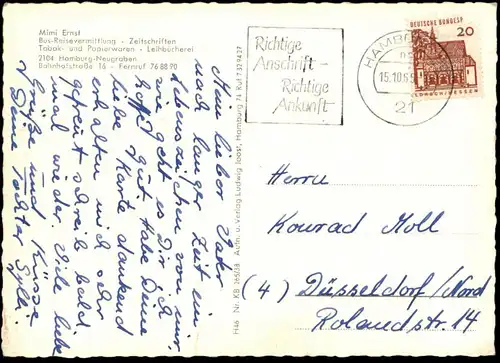 Mimi Ernst
Bus-Reisevermittlung - Zeitschriften
Tabak- und Papierwaren - Leihbücherei
2104 Hamburg-Neugraben
Bahnhofstraße 16 - Fernruf 76 88 90
Mein lieber Vater
nach langer Zeit ein
Lebenszeichen von mir.
wie geht es Dir? Ich
hoffe gut. Habe Deine
liebe Karte dankend
erhalten und mich sehr
gefreut schreibe bald
mal wieder. Viele liebe
Grüße und Küsse
Deine Tochter
H46 Nr. KB 265/38 Aufn. u. Verlag Ludwig Joost, Hamburg 74 Ruf 7 32 94 27
Richtige
Anschrift -
Richtige
Ankunft -
HAMB
15.10.65
21
DEUTSCHE BUNDESPOST
20
LORSCH/HESSEN
Herrn
Konrad Moll
(4) Düsseldorf/Nord
Rolandstr. 14